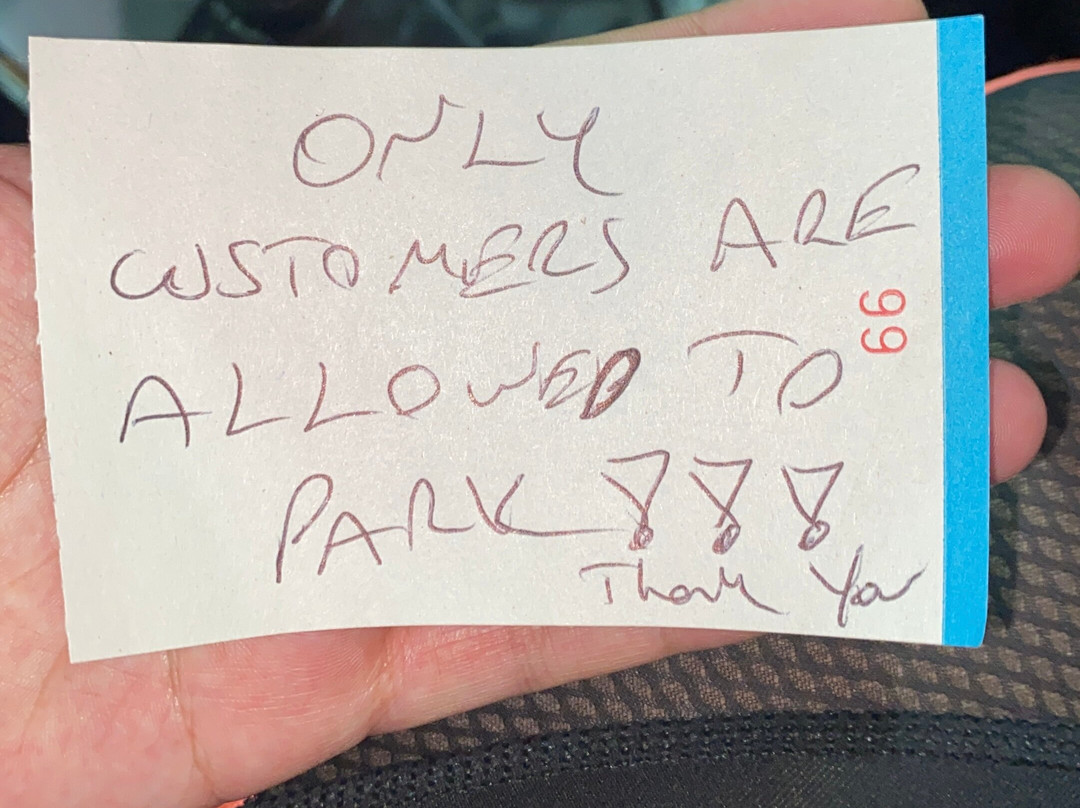 ONLY
CUSTOMERS ARE
ALLOWED TO
PARK!!!
Thank You
99